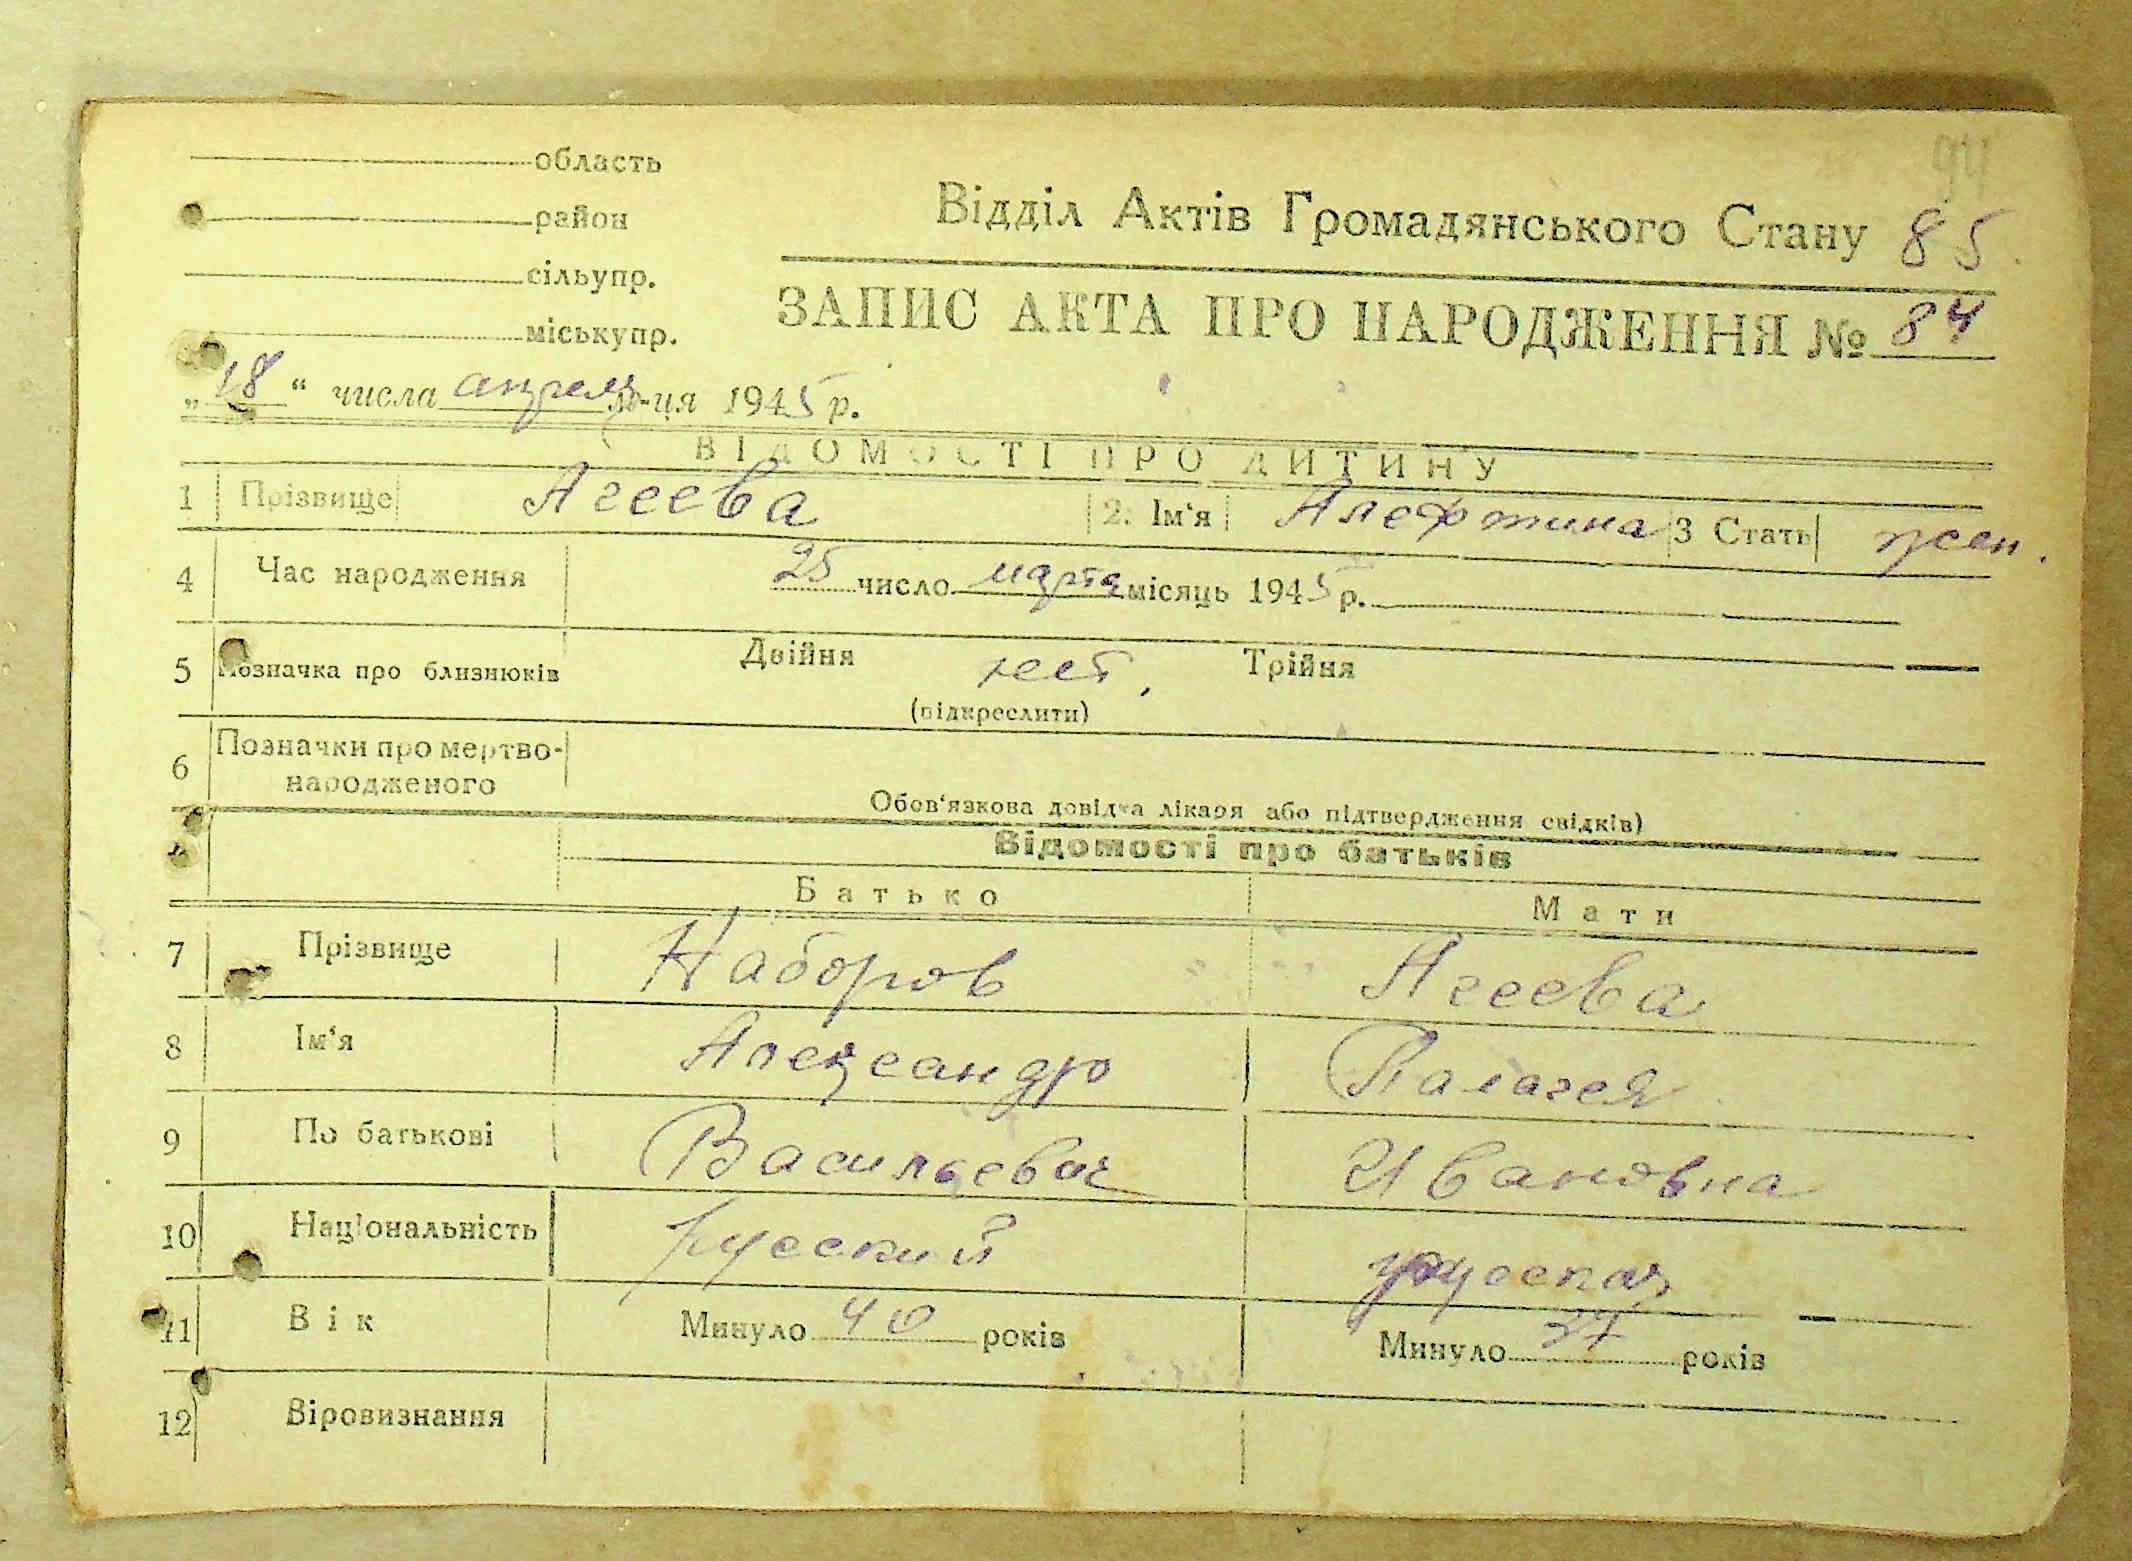 область
район
сільупр.
міськупр.
94
Відділ Актів Громадянського Стану 85.
ЗАПИС АКТА ПРО НАРОДЖЕННЯ № 84
„18“ числа апреля м-ця 1945 р.
ВІДОМОСТІ ПРО ДИТИНУ
1 Прізвище Агеева 2. Ім‘я Алефтина 3 Стать жен.
4 Час народження 25 число марта місяць 1945 р.
5 Позначка про близнюків Двійня нет, Трійня
(підкреслити)
6 Позначки про мертво-
народженого
Обов‘язкова довідка лікаря або підтвердження свідків)
Відомості про батьків
Батько Мати
7 Прізвище Наборов Агеева
8 Ім‘я Александр Палагея
9 По батькові Васильевич Ивановна
10 Національність русский русская
11 Вік Минуло 40 років Минуло 37 років
12 Віровизнання